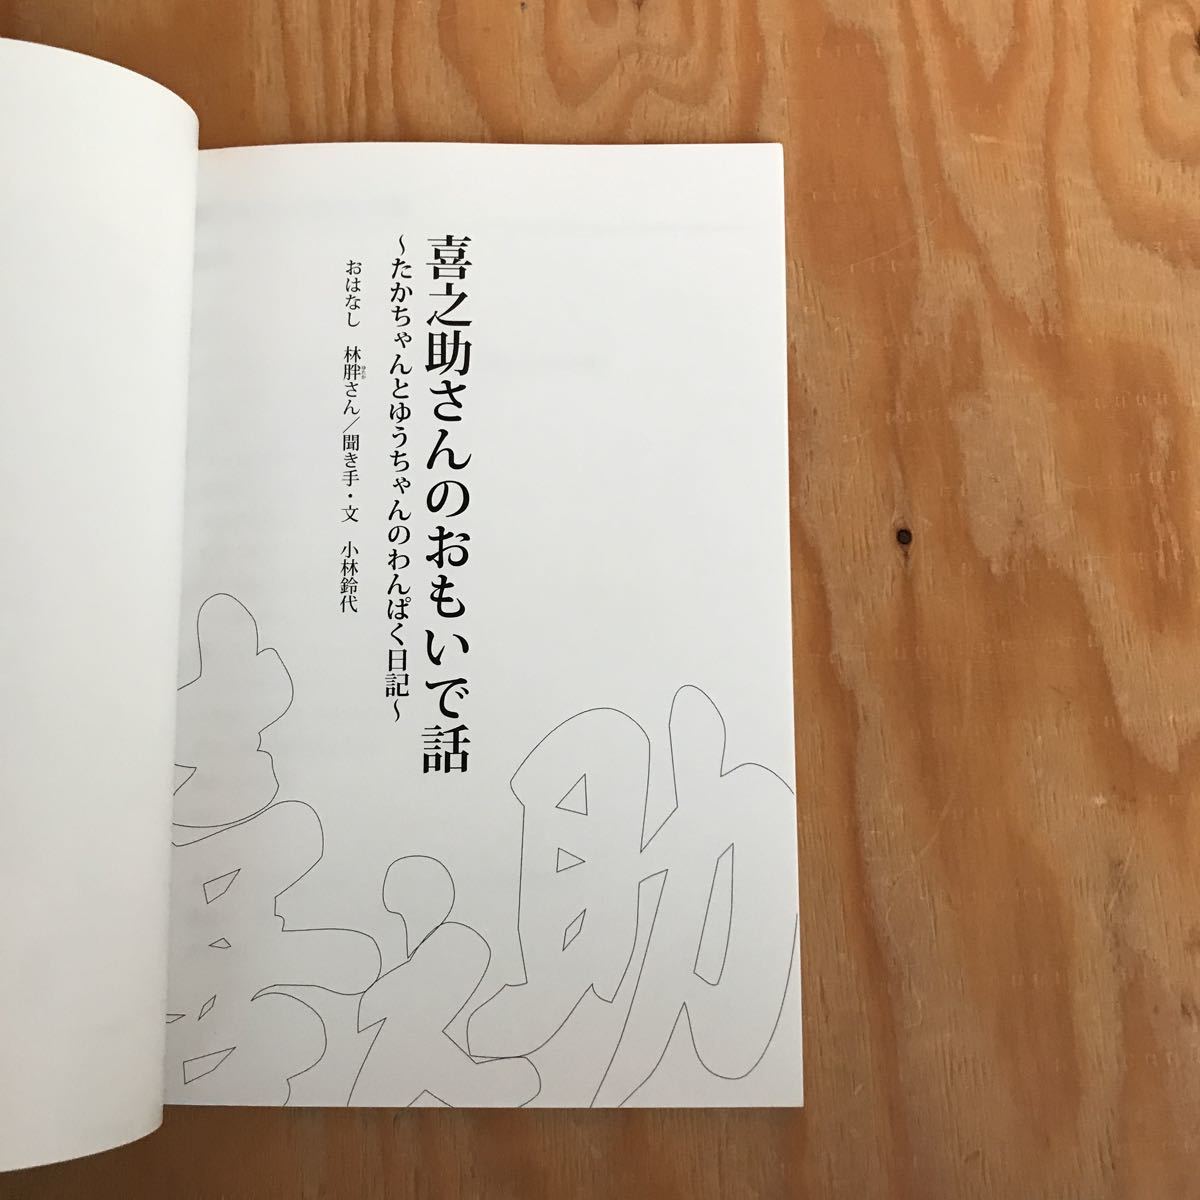 喜之助さんのおもいで話
～たかちゃんとゆうちゃんのわんぱく日記～
おはなし　林胖さん／聞き手・文　小林鈴代
喜之助